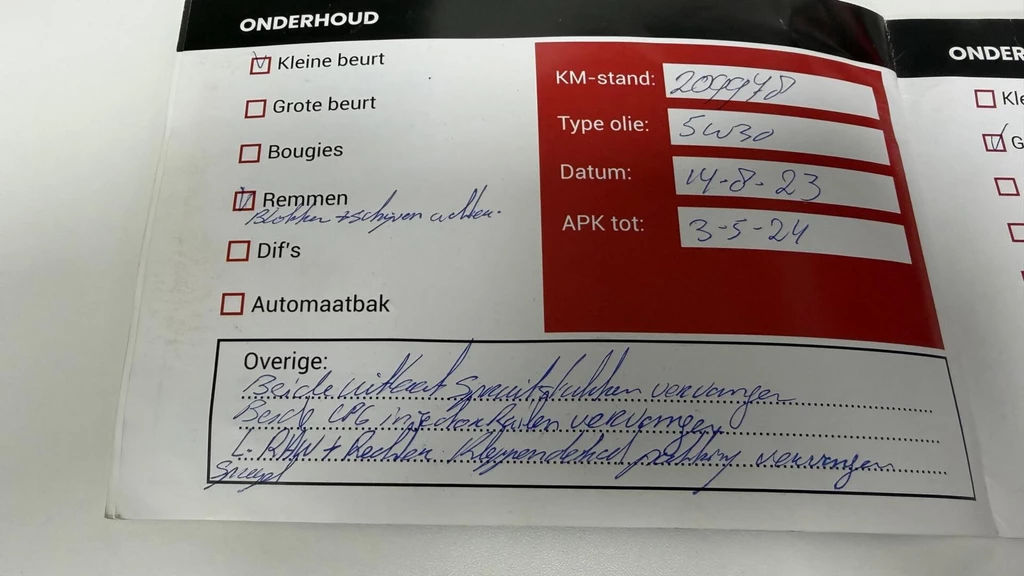 ONDERHOUD
Kleine beurt
Grote beurt
Bougies
Remmen
Blokken + schijven achter.
Dif's
Automaatbak
KM-stand: 209978
Type olie: 5W30
Datum: 14-8-23
APK tot: 3-5-24
Overige:
Beide uitlaat spruitstukken vervangen
Beide LPG injectorrailen vervangen
L. + Rechter Kleppendeksel pakking vervangen
Spiegel
ONDER
Kle
G